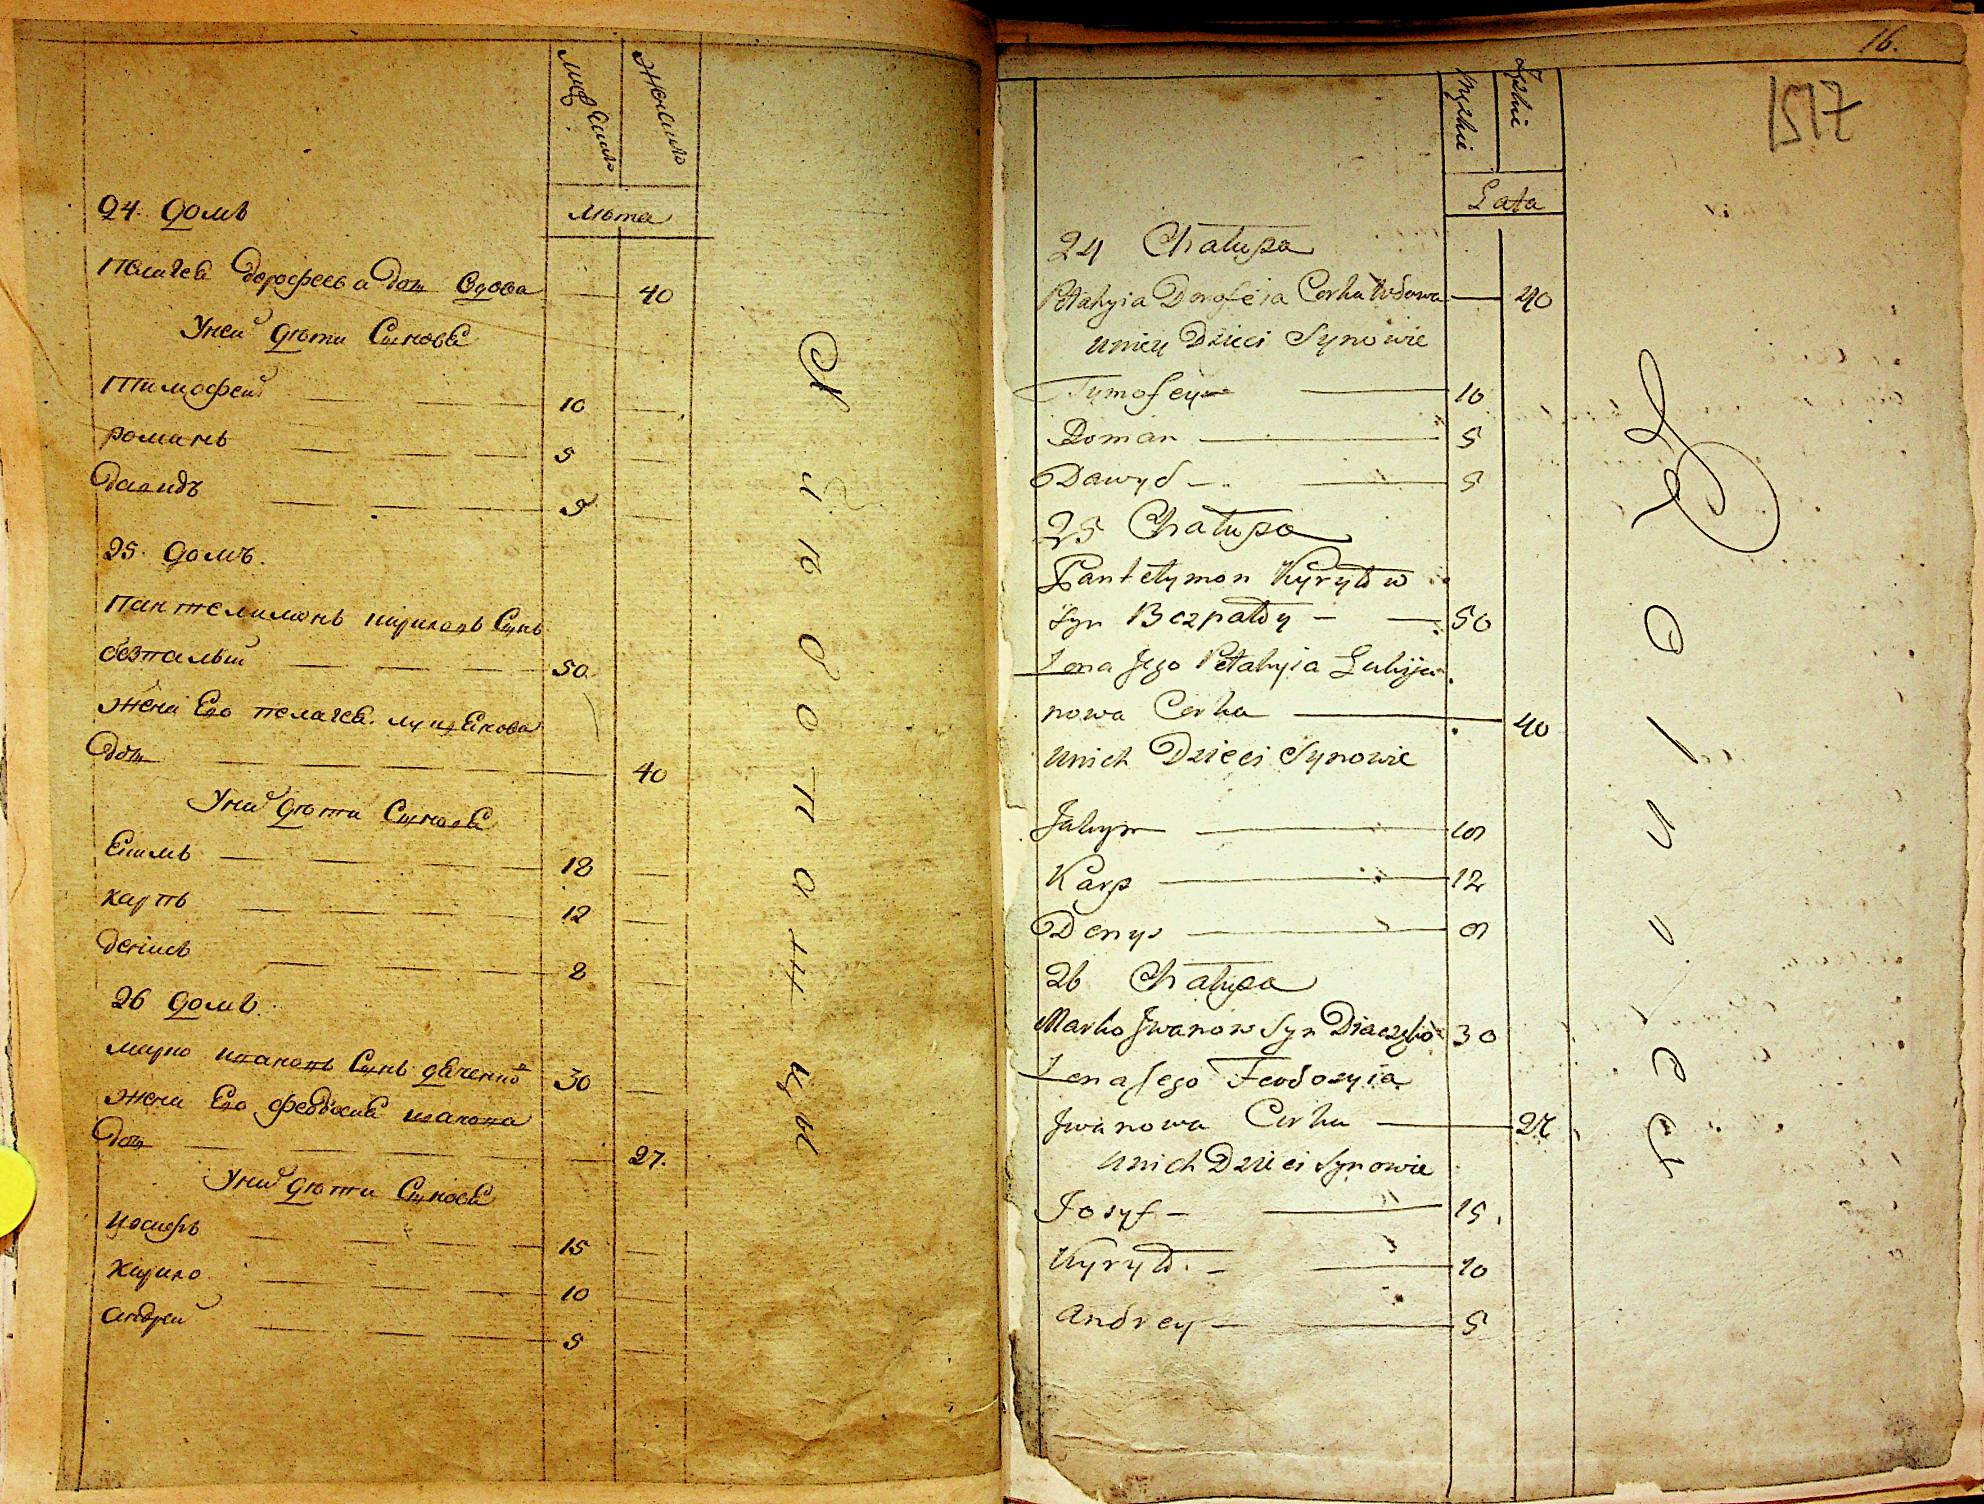 Мужеска
Женска
лѣта
24. домъ
Пелагея дорофеева дощ вдова — 40
Уней дѣти Синовя
Тимофей — 10
романъ — 5
давидъ — 5
25. домъ.
Пантелимонъ кириловъ Синъ
безпалый — 50.
жена Его пелагея лукъянова
дощ — 40
Уних дѣти Синовя
Якимъ — 18
карпъ — 12
денисъ — 8
26 домъ.
марко ивановъ Синъ дяченко — 30
жена Его феодосия иванова
дощ — 27.
Уних дѣти Синовя
иосифъ — 15
кирило — 10
андрей — 5
16.
1517
Męzkie
Zeskie
Lata
24 Chałupa
Pełahyia Dorofeia Corka Wdowa — 40
Uniey Dzieci Synowie
Tymofey — 10
Roman — 5
Dawyd — 5
25 Chałupa
Pantełymon Kyryłow
Syn Bezpałły — 50
Zena Jego Pełahyia Lukyja-
nowa Corka — 40
Unich Dzieci Synowie
Jakym — 18
Karp — 12
Denys — 8
26 Chałupa
Marko Jwanow Syn Diaczęko 30
Zena Jego Feodosyia
Jwanowa Corka — 27
Unich Dzieci Synowie
Josyf — 15.
Kyryło — 10
Andrey — 5